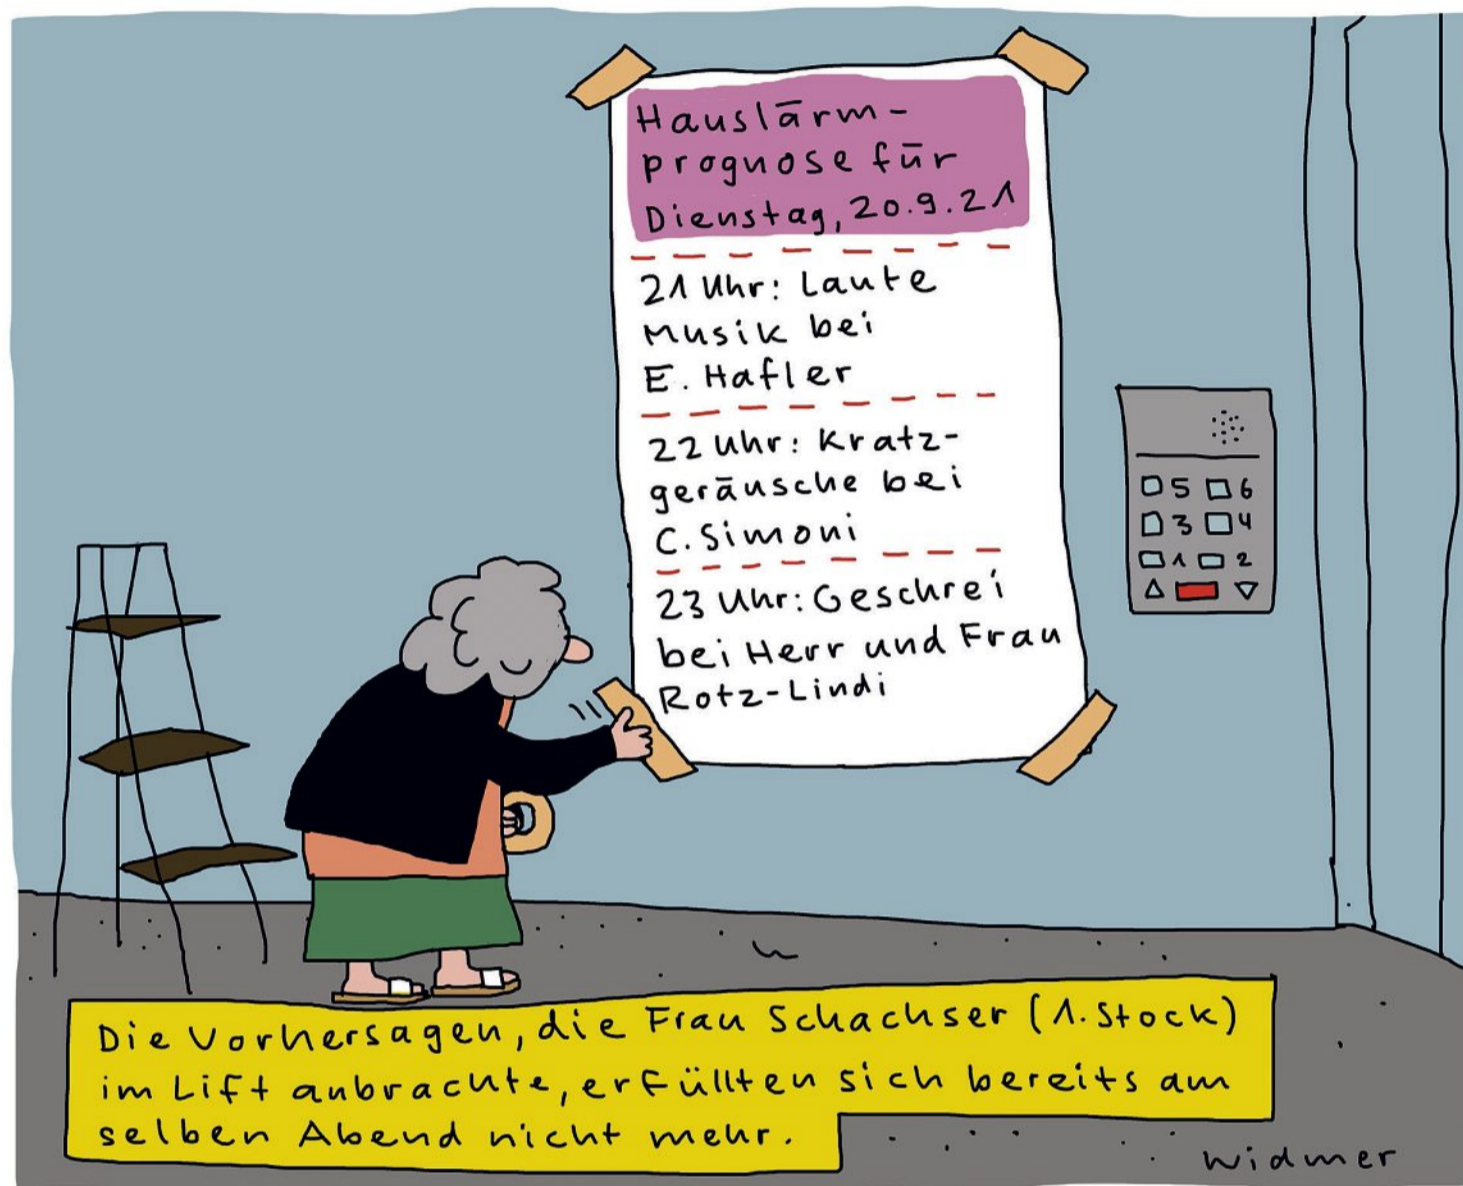 Hauslärm-
prognose für
Dienstag, 20.9.21
21 Uhr: Laute
Musik bei
E. Hafler
22 Uhr: Kratz-
geräusche bei
C. Simoni
23 Uhr: Geschrei
bei Herr und Frau
Rotz-Lindi
5 6
3 4
1 2
Die Vorhersagen, die Frau Schachser (1. Stock)
im Lift anbrachte, erfüllten sich bereits am
selben Abend nicht mehr.
Widmer